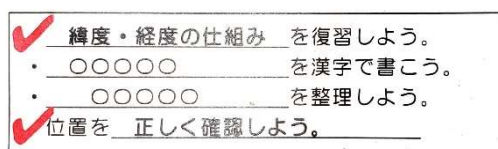 緯度・経度の仕組み を復習しよう。
・ ○○○○○ を漢字で書こう。
・ ○○○○○ を整理しよう。
位置を 正しく確認しよう。